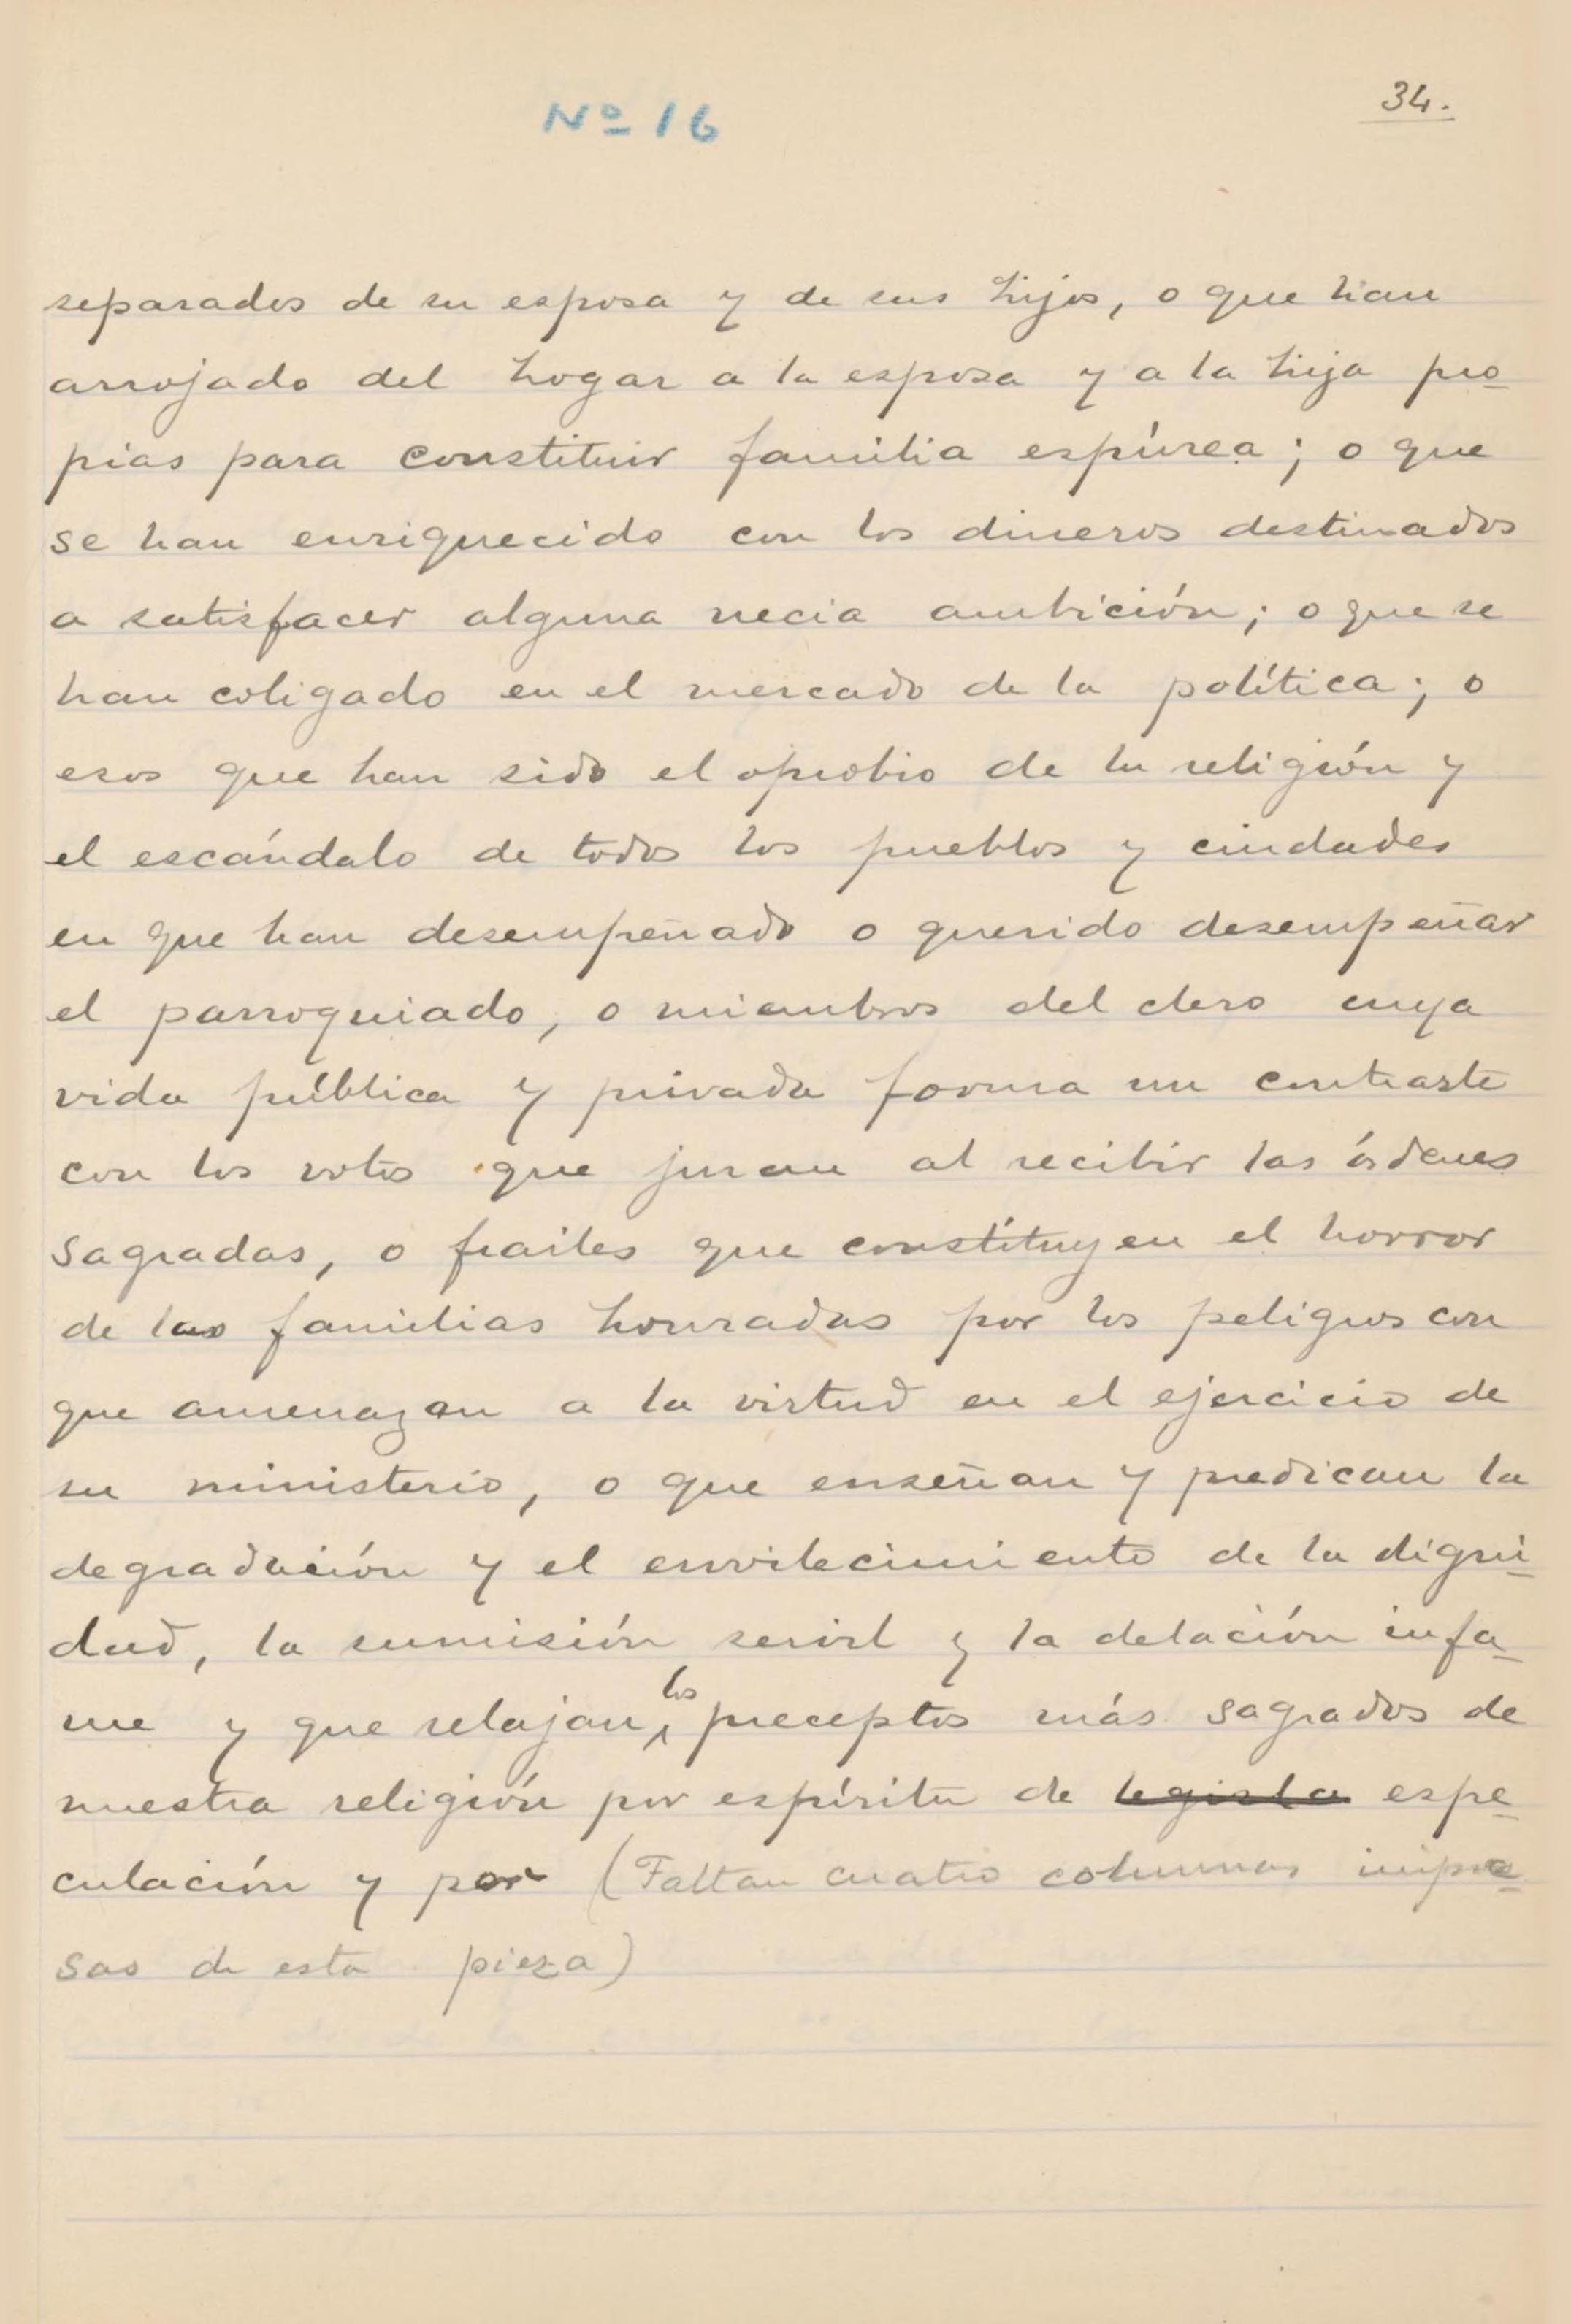 Nº 16
34.
separados de su esposa y de sus hijos, o que han
arrojado del hogar a la esposa y a la hija pro-
pias para constituir familia espúrea; o que
se han enriquecido con los dineros destinados
a satisfacer alguna necia ambición; o que se
han coligado en el mercado de la política; o
esos que han sido el oprobio de la religión y
el escándalo de todos los pueblos y ciudades
en que han desempeñado o querido desempeñar
el parroquiado, o miembros del clero cuya
vida pública y privada forma un contraste
con los votos que juran al recibir las órdenes
sagradas, o frailes que constituyen el horror
de las familias honradas por los peligros con
que amenazan a la virtud en el ejercicio de
su ministerio, o que enseñan y predican la
degradación y el envilecimiento de la digni-
dad, la sumisión servil y la delación infa-
me y que relajan los preceptos más sagrados de
nuestra religión por espíritu de legisla espe-
culación y por (Faltan cuatro columnas impre-
sas de esta pieza)